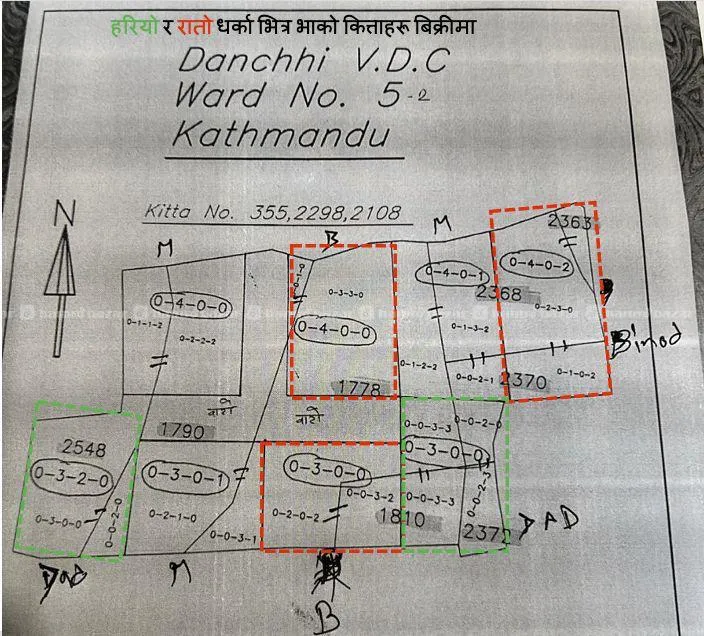 हरियो र रातो धर्का भित्र भाको कित्ताहरू बिक्रीमा
Danchhi V.D.C
Ward No. 5-2
Kathmandu
N
Kitta No. 355,2298,2108
M
B
M
2363
0-4-0-0
0-3-3-0
0-4-0-1
0-4-0-2
2368
0-1-1-2
0-2-2-2
0-4-0-0
0-1-3-2
0-2-3-0
Binod
0-1-2-2
0-0-2-1
2370
0-1-0-2
1778
बाटो
बाटो
1790
0-0-3-3
0-0-2-0
2548
0-3-2-0
0-3-0-1
0-3-0-0
0-3-0-0
0-3-0-0
0-0-2-0
0-2-1-0
0-0-3-1
0-2-0-2
0-0-3-2
0-0-3-3
0-0-2-3
1810
2372
DAD
Dad
M
B